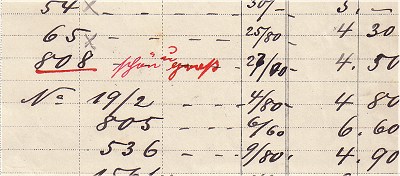 54 x - - - 30/- 3. -
65 x - - - 25/80 - 4 30
808 schön u groß - 27/80 - 4. 50
No 19/2 - - 4/80 - 4 80
805 - - 6/60 6. 60
536 - - 9/80. 4. 90